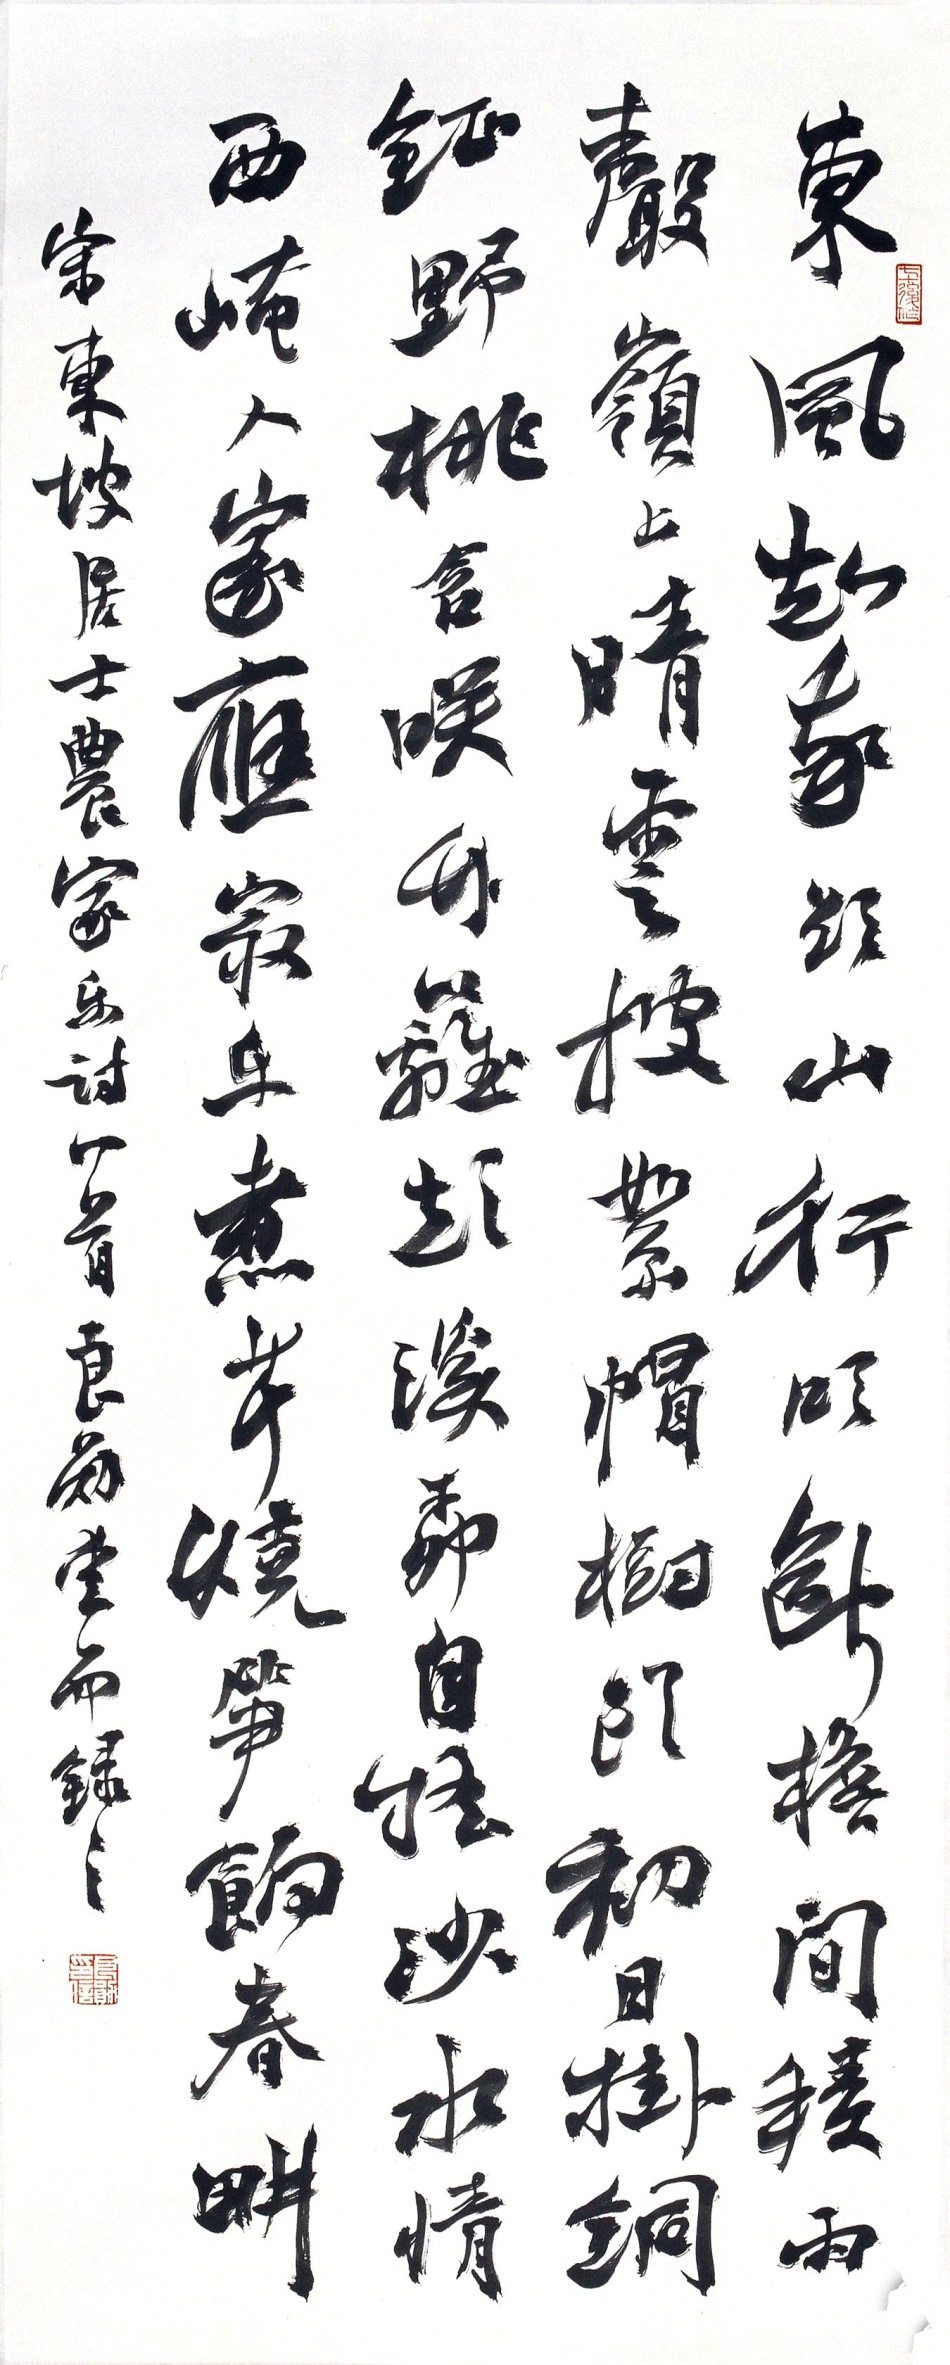 東風知我欲山行吹斷檐間積雨
聲嶺上晴雲披絮帽樹頭初日掛銅
鉦野桃含咲竹籬短溪柳自搖沙水清
西崦人家應最樂煮芹燒筍餉春畊
宋東坡居士農家樂詩一首 而錄之